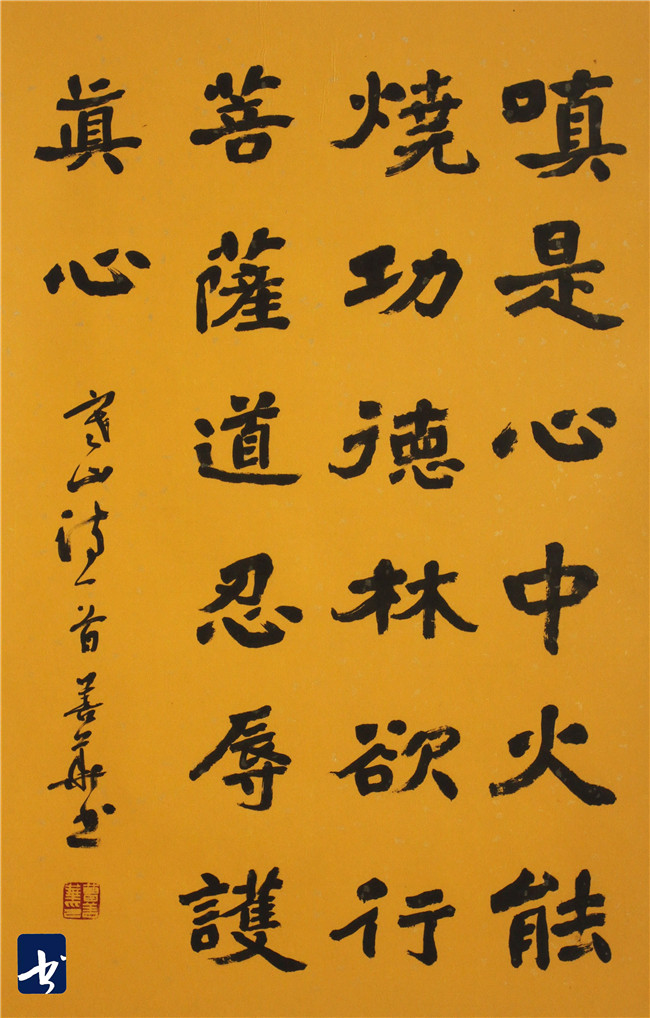 嗔是心中火能
燒功德林欲行
菩薩道忍辱護
真心
寒山詩一首善華书